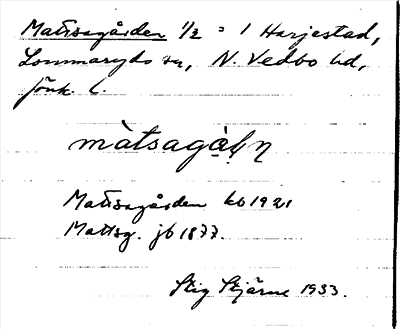 Matsagården 1/2 = 1 Harjestad,
Lommaryds sn, N. Vedbo hd,
Jönk. l.
màtsagàɭɳ
Matsagården kb 1921
Mattsg. jb 1877.
Stig Stjärne 1933.